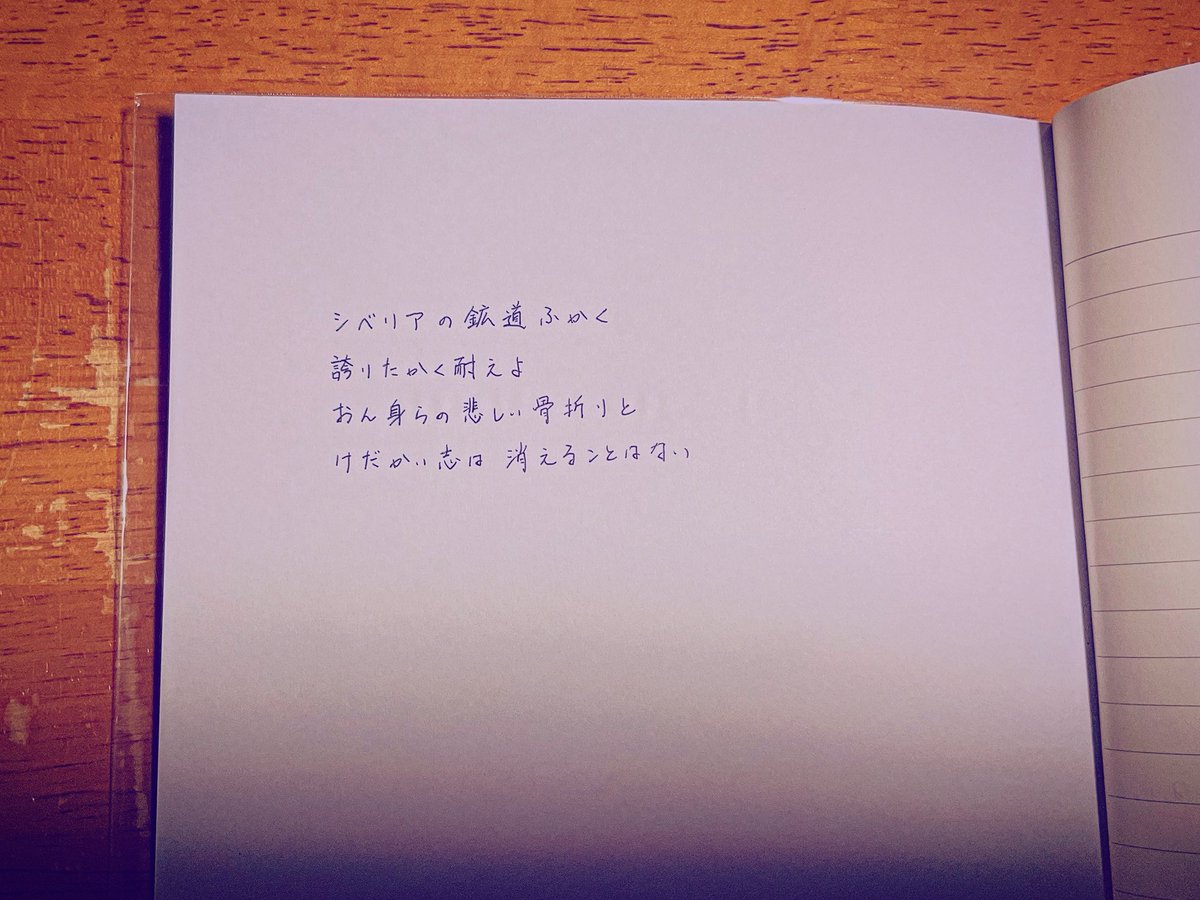 シベリアの鉱道ふかく
誇りたかく耐えよ
おん身らの悲しい骨折りと
けだかい志は 消えることはない